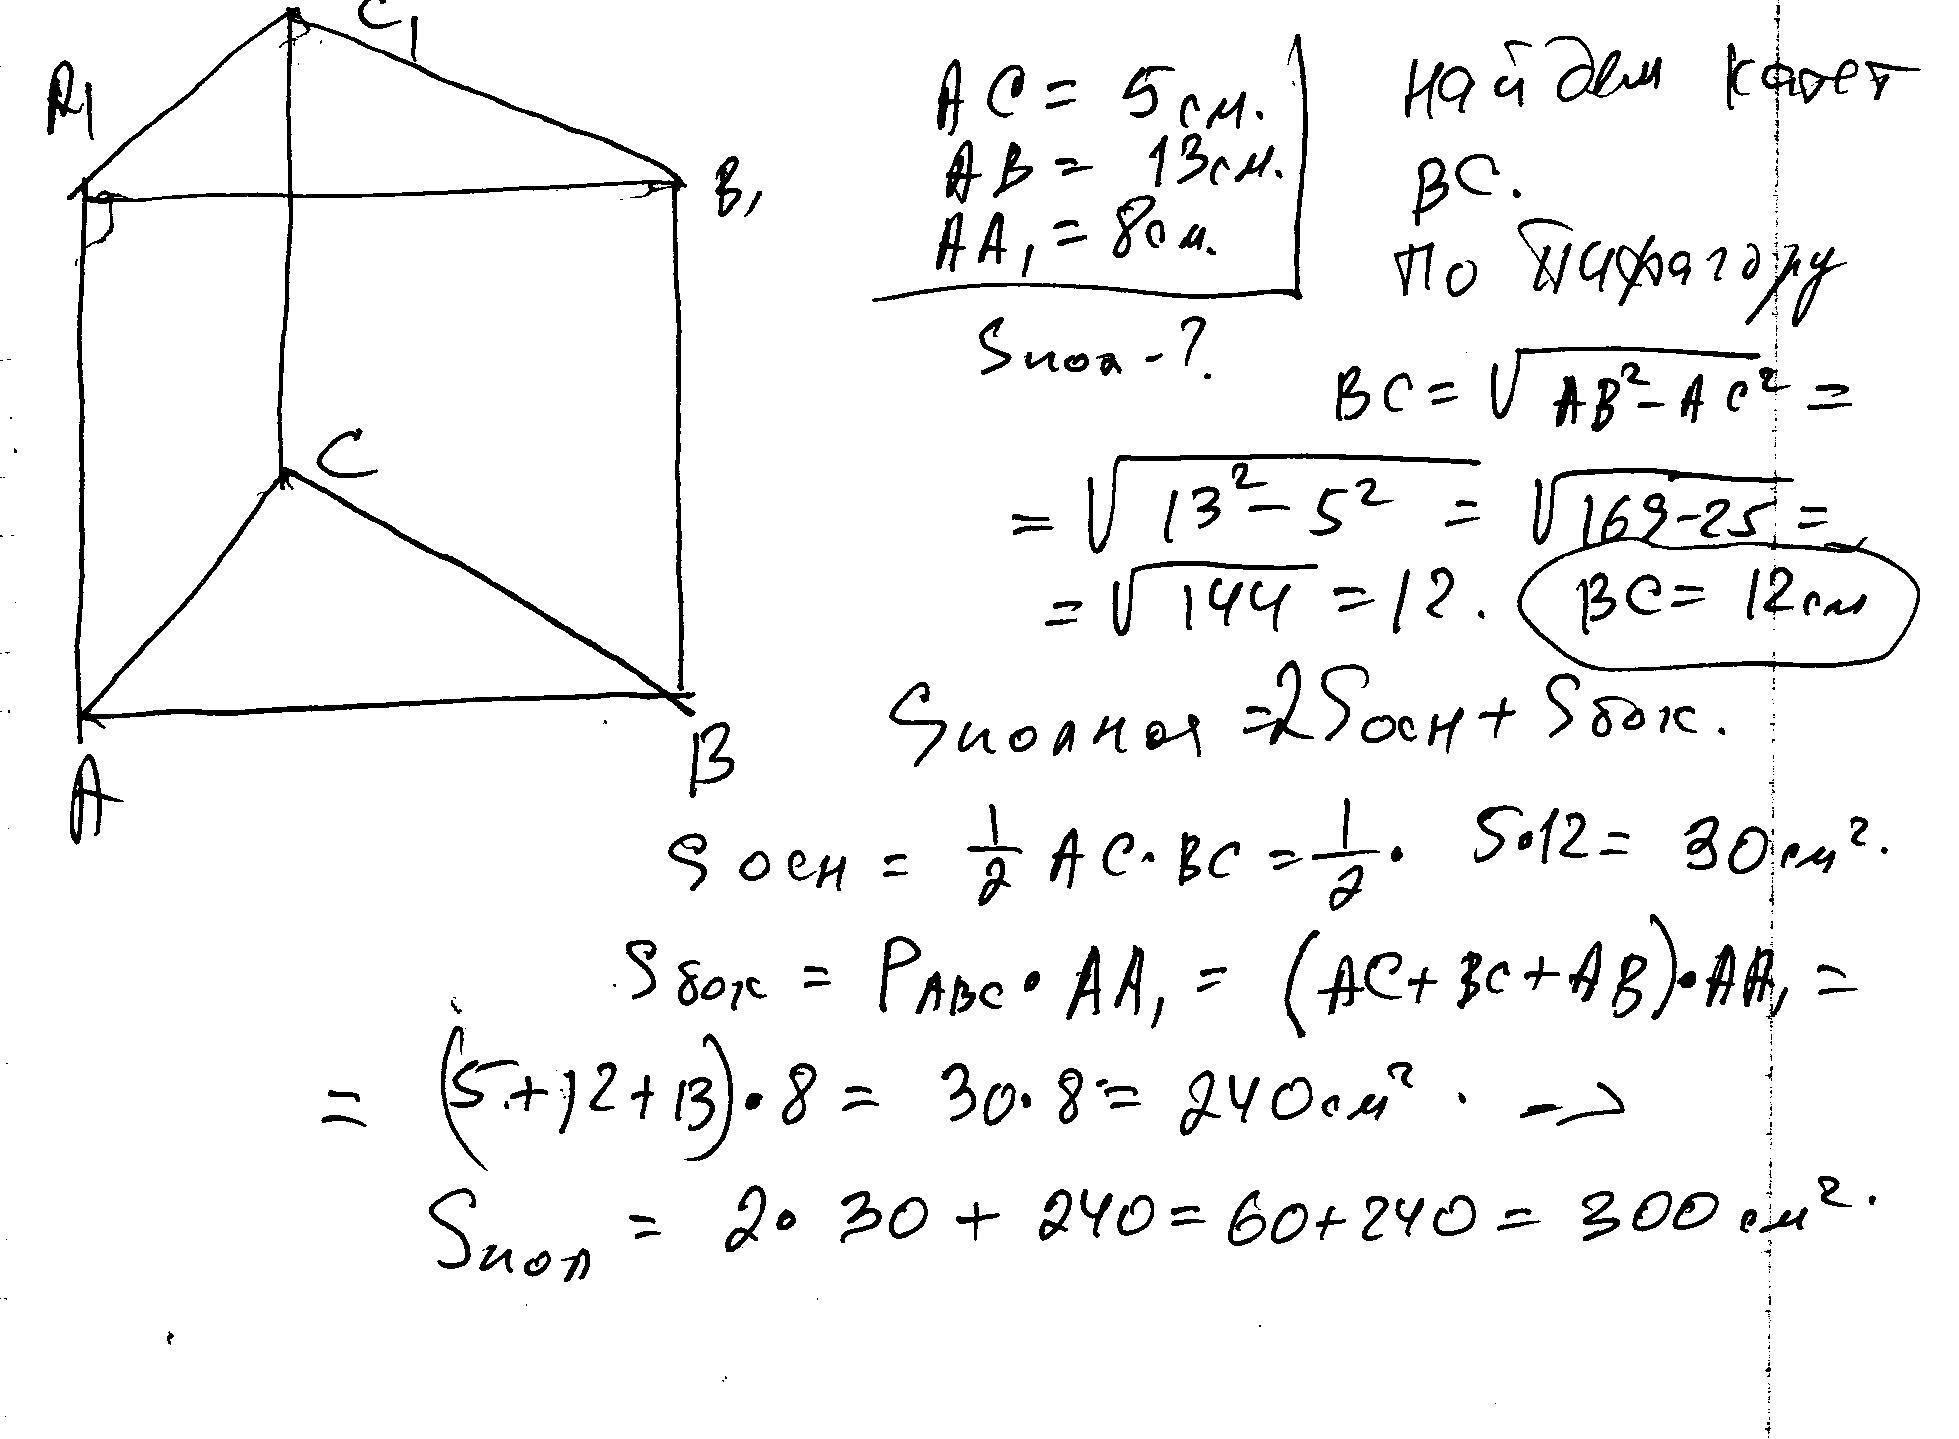 C₁
A₁
B₁
C
A
B
AC = 5 см.
AB = 13 см.
AA₁ = 8 см.
Sпол - ?
Найдем катет
BC.
По Пифагору
BC = √(AB² - AC²) =
= √(13² - 5²) = √(169-25) =
= √144 = 12. BC = 12 см
Sполная = 2Sосн + Sбок.
Sосн = 1/2 AC · BC = 1/2 · 5·12 = 30 см².
Sбок = PABC · AA₁ = (AC + BC + AB) · AA₁ =
= (5 + 12 + 13) · 8 = 30 · 8 = 240 см². →
Sпол = 2 · 30 + 240 = 60 + 240 = 300 см².